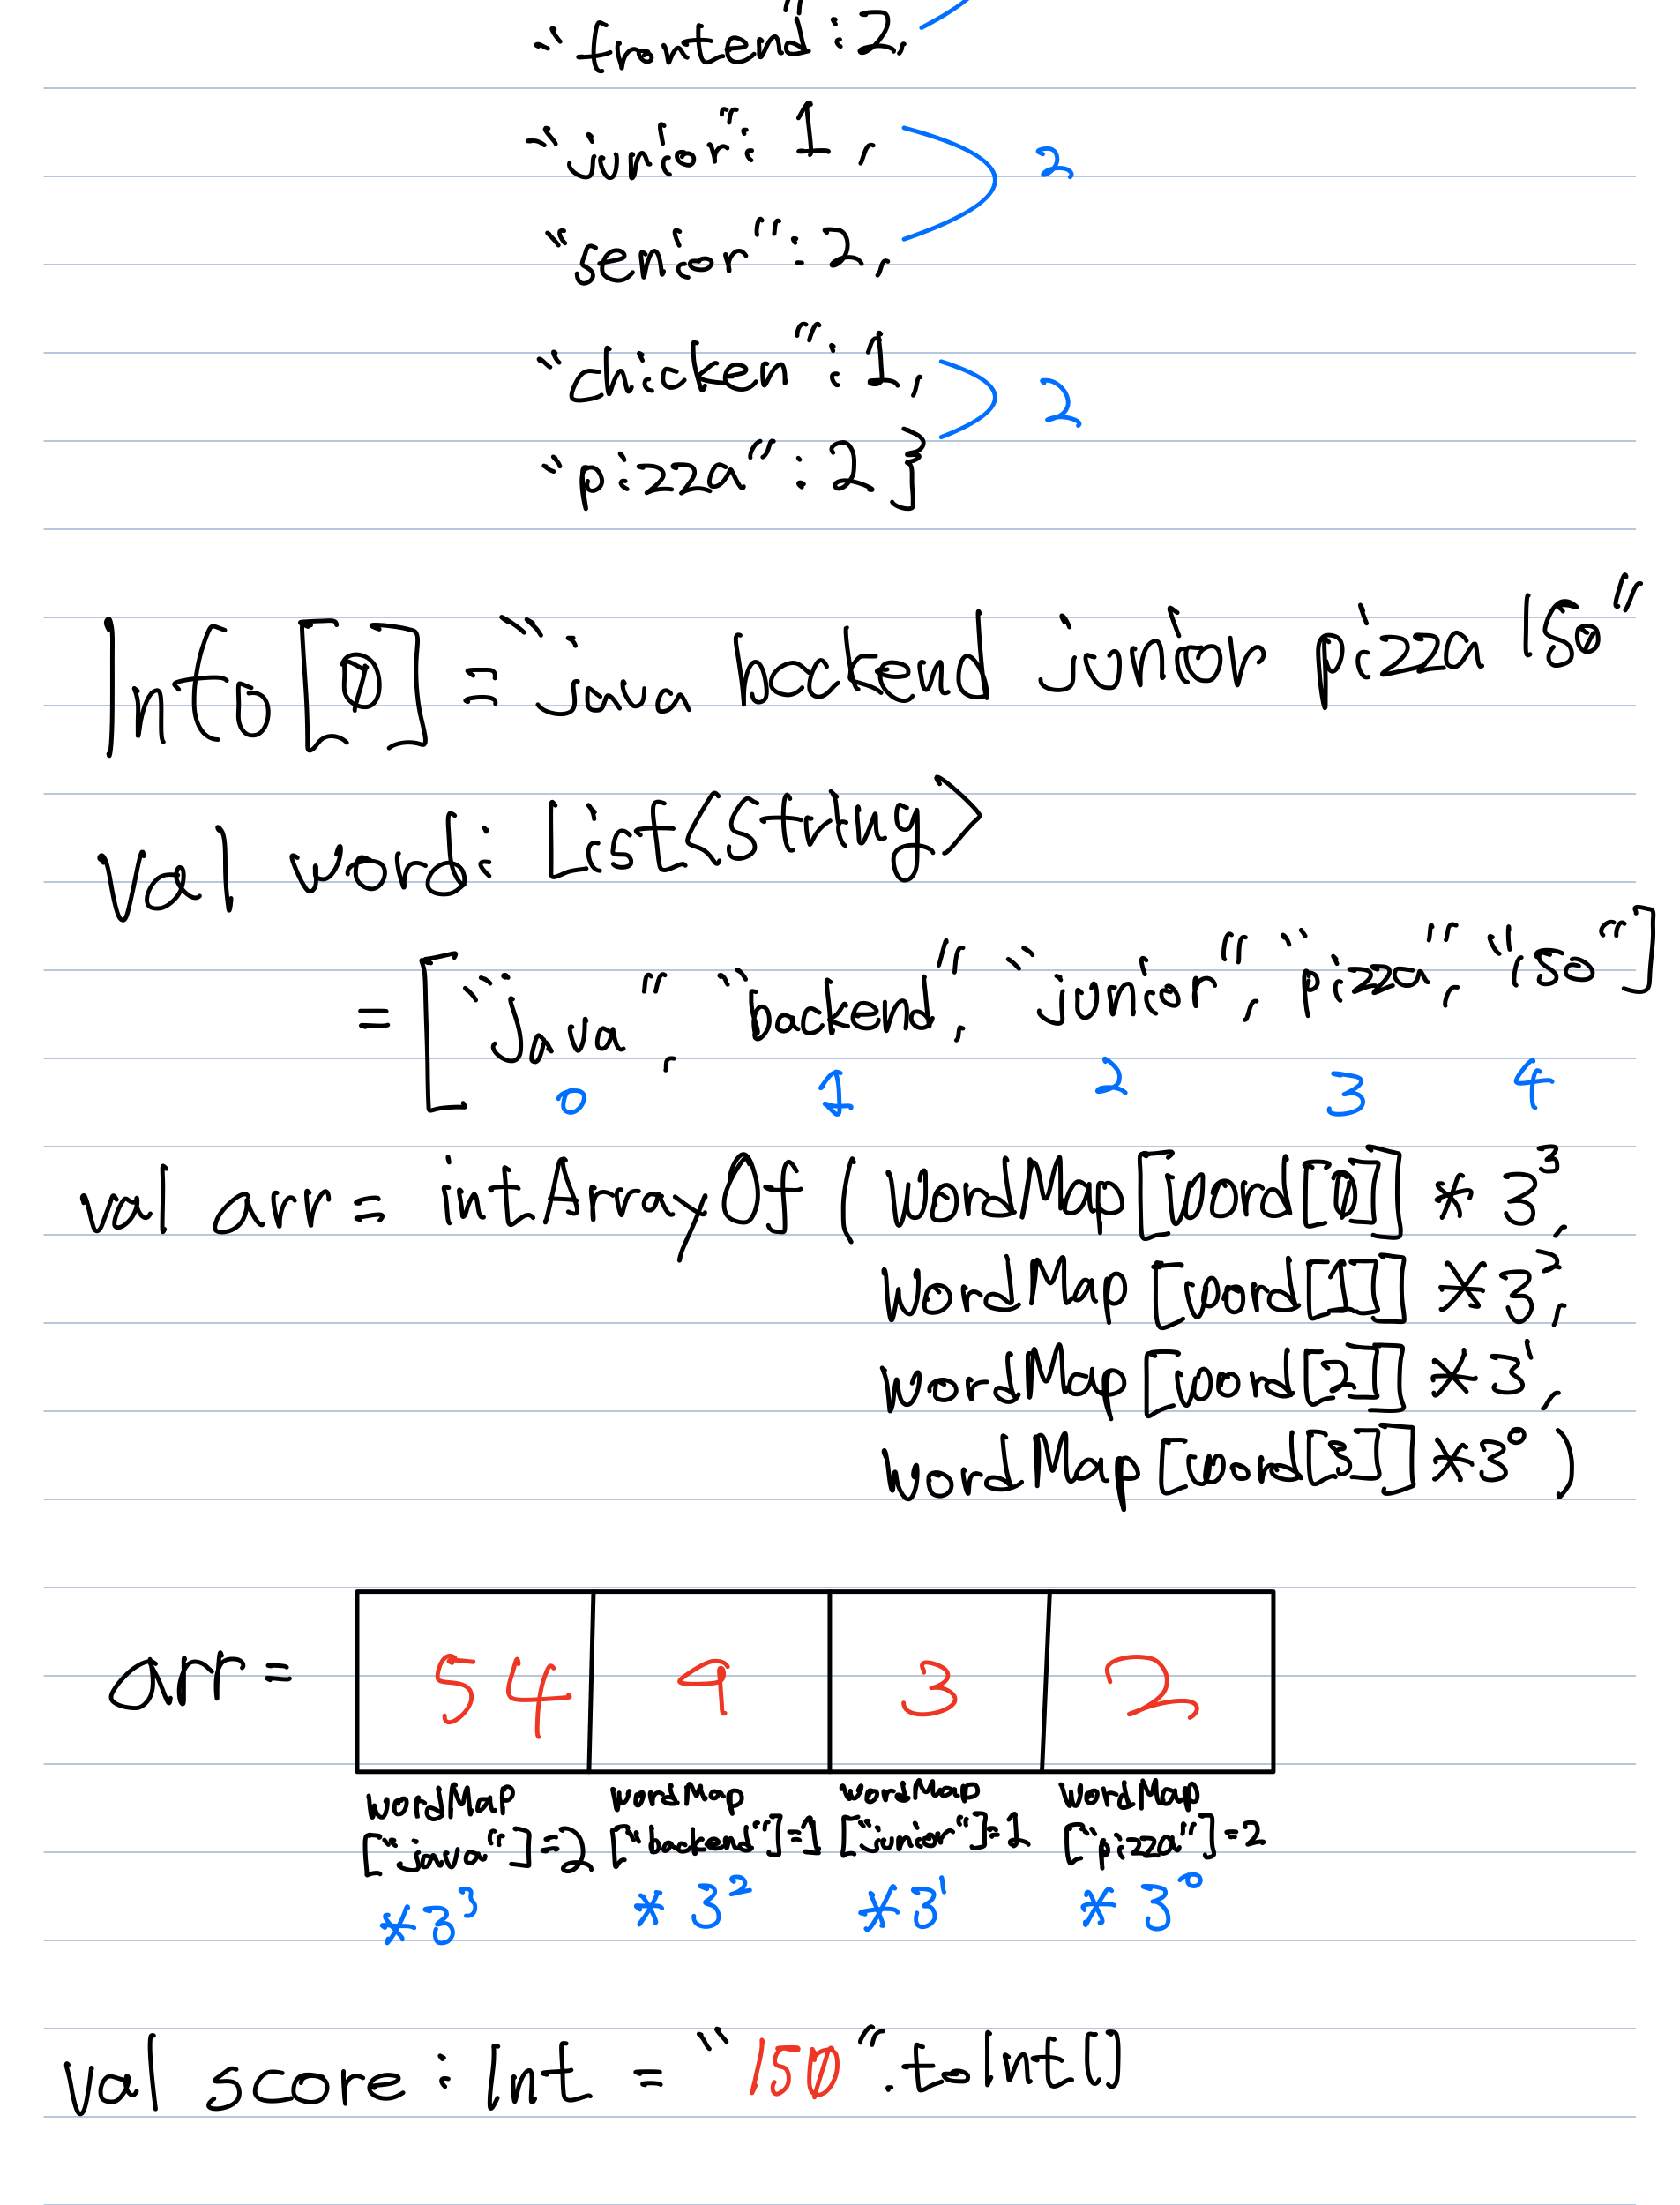 "frontend": 2,
"junior": 1,
2
"senior": 2,
"chicken": 1,
2
"pizza": 2}
Info[0] = "java backend junior pizza 150"
Val word: List<String>
= ["java", "backend", "junior", "pizza", "150"]
0 1 2 3 4
val arr = intArrayOf(WordMap[Word[0]] * 3³,
WordMap[word[1]] * 3²,
wordMap[word[2]] * 3¹,
wordMap[word[3]] * 3⁰)
arr = 54 9 3 2
wordMap wordMap wordMap wordMap
["java"]=2 ["backend"]=1 ["junior"]=1 ["pizza"]=2
* 3³ * 3² * 3¹ * 3⁰
Val score : Int = "150".toInt()